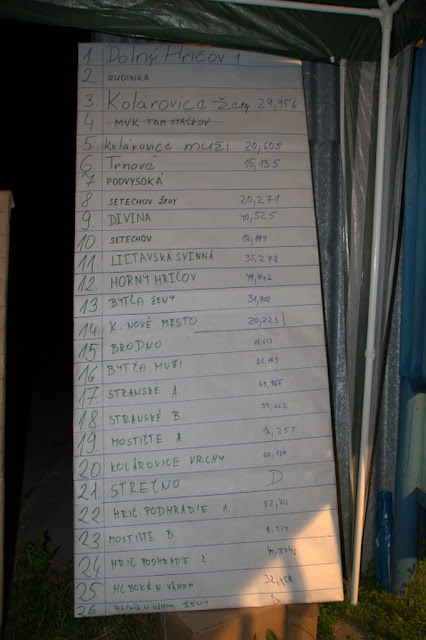 1 Dolný Hričov 1
2 RUDINKA
3 Kolárovice ženy 29,956
4 MVK TAM STAČKOV
5 Kolárovice muži 20,605
6 Trnové 15,135
7 PODVYSOKÁ
8 SETECHOV ŽENY 20,271
9. DIVINA 40,525
10 SETECHOV
11. LIETAVSKA SVINNÁ 35,272
12. HORNÝ HRIČOV
13 BYTČA ŽENY 31,902
14 K. NOVÉ MESTO 20,223
15 BRODNO
16 BYTČA MUŽI
17. STRANSKE A.
18. STRANSKÉ B
19. MOSTIŠTE A 16,255
20 KOLÁROVICE VRCHY
21. STREČNO D
22 HRIČ. PODHRADIE 1.
23 MOSTIŠTE B.
24 HRIČ. PODHRADIE 2.
25 N. VÁHOM 32,158
26. N. VÁHOM ŽENY